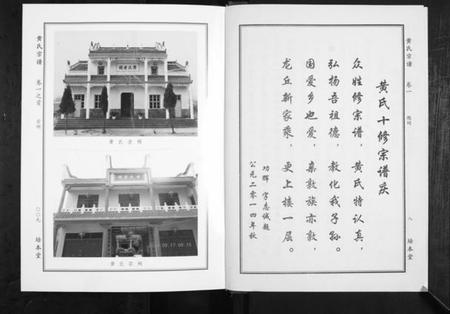 黄氏宗谱
卷一之首
黄氏宗祠
黄氏宗祠
〇〇九
培本堂
黄氏宗谱
卷一
八
培本堂
黄氏十修宗谱庆
众姓修宗谱，黄氏特认真，
弘扬吾祖德，教化我子孙。
国爱乡也爱，亲敦族亦敦，
龙丘新家乘，更上楼一层。
功辉 字志诚题
公元二零一四年秋